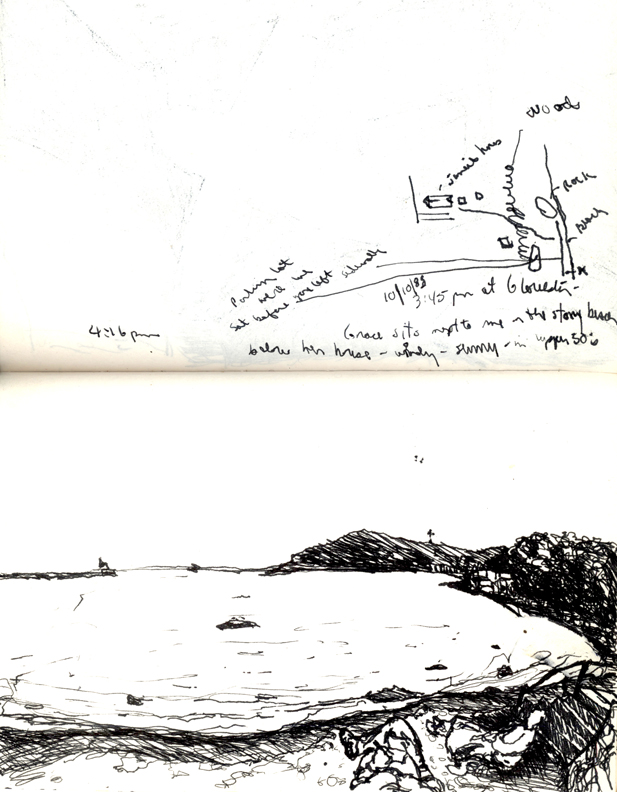 Woods
Rock
Beach
Parking lot
sidewalk
set before you left
10/10/88
3:45 pm at Gloucester -
4:16 pm
Grace sits next to me on the stony beach
before her house - windy - sunny - in upper 50's